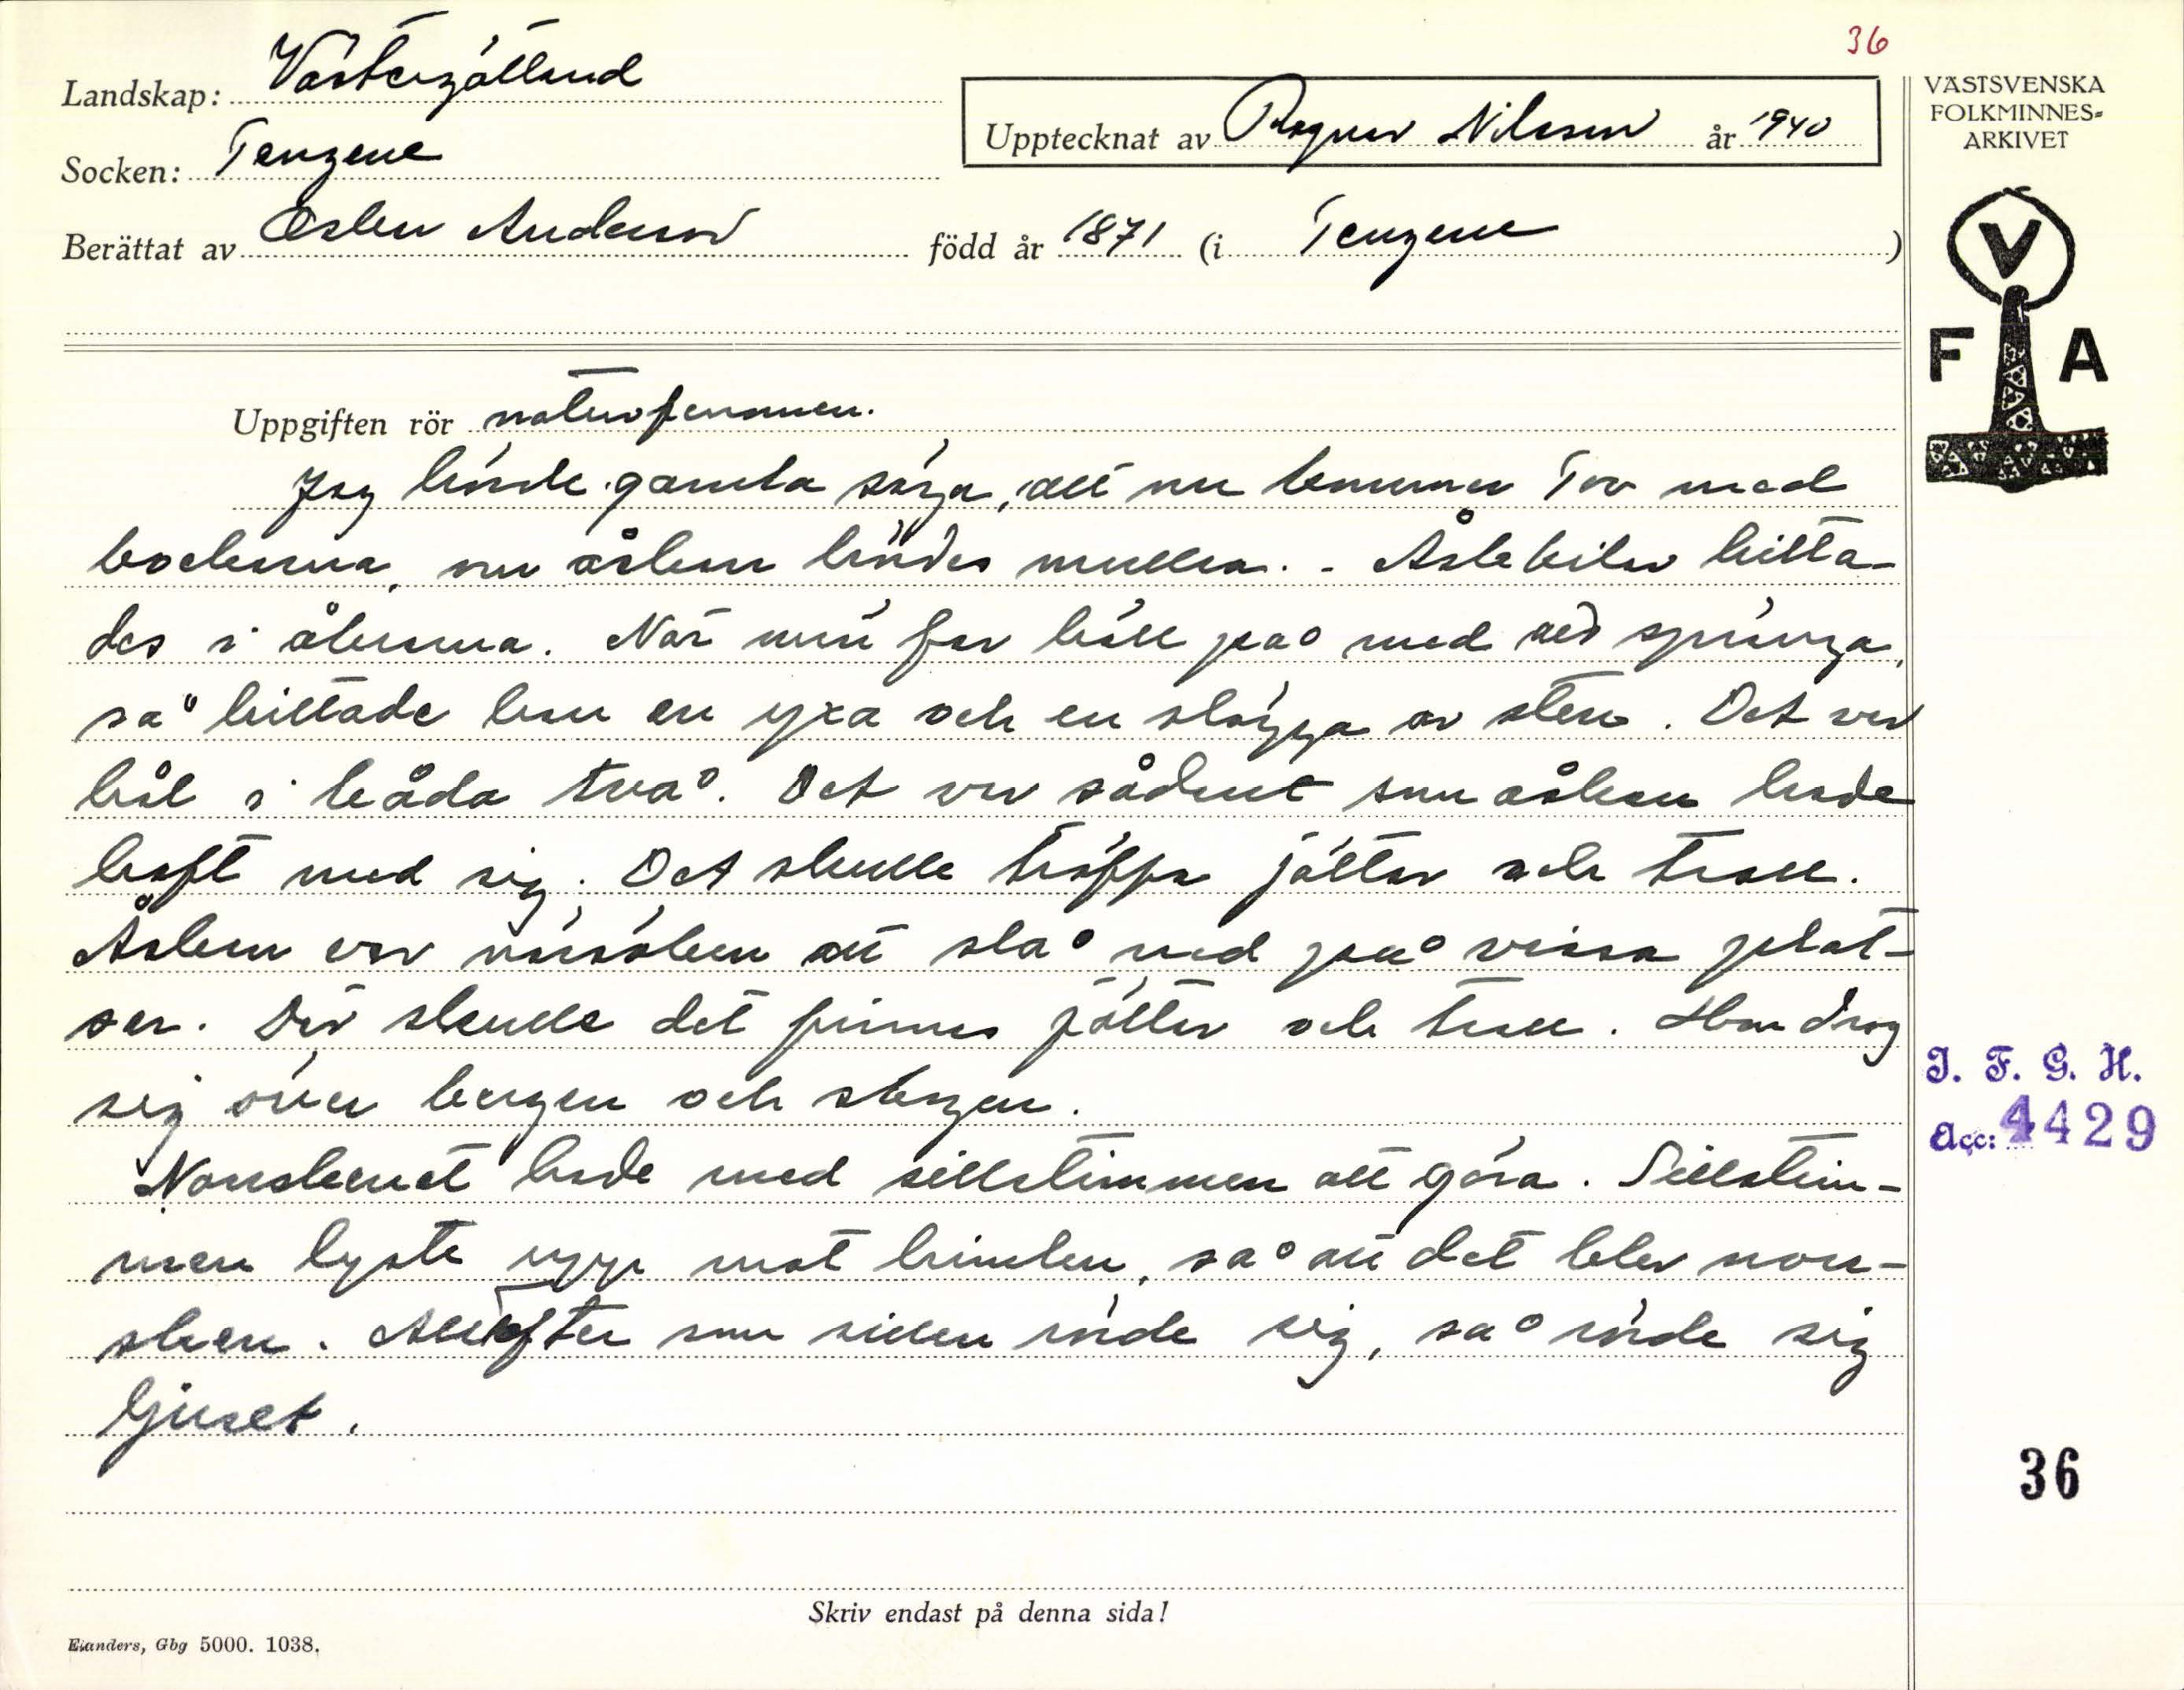 36
Landskap: Västergötland
Socken: Tengene
Upptecknat av Ragnar Nilsson år 1940
Berättat av Oskar Andersson född år 1871 (i Tengene)
VÄSTSVENSKA
FOLKMINNES-
ARKIVET
V
F A
Uppgiften rör naturfenomen.
Jag hörde gamla säga, att nu kommer Tor med
bockarna, nu åskan hördes mullra. - Åskkilar hitta-
des i åkrarna. När min far höll på med att spränga,
så hittade han en yxa och en slägga av sten. Det var
hål i båda två. Det var sådant som åskan hade
haft med sig. Det skulle träffa jättar och troll.
Åskan var närsöken att slå ned på vissa plat-
ser. Där skulle det finnas jättar och troll. Han drog
sig över bergen och skogen.
Norrskenet hade med sillstimmen att göra. Sillstim-
men lyste upp mot himlen, så att det blev norr-
sken. Allt efter som sillen rörde sig, så rörde sig
ljuset.
I. F. G. H.
Acc: 4429
36
Skriv endast på denna sida!
Elanders, Gbg 5000. 1038.